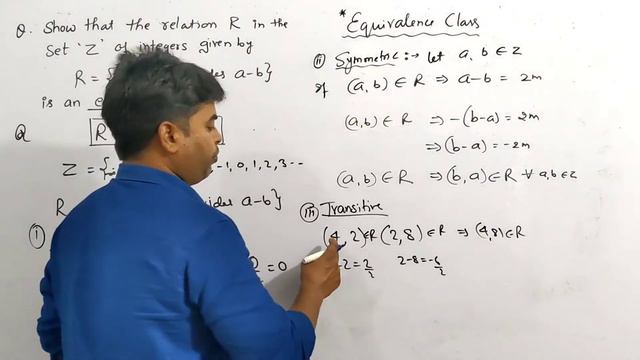 Q. Show that the relation R in the
Set 'Z' of integers given by
R = { ides a-b}
is an
Q R
Z = { -1, 0, 1, 2, 3 --
R ides a-b}
①
= 0
* Equivalence Class
(ii) Symmetric :→ let a, b ∈ Z
If (a, b) ∈ R ⇒ a-b = 2m
(a, b) ∈ R ⇒ -(b-a) = 2m
⇒ (b-a) = -2m
(a, b) ∈ R ⇒ (b, a) ∈ R ∀ a,b ∈ Z
(iii) Transitive
(4, 2) ∈ R (2, 8) ∈ R ⇒ (4, 8) ∈ R
-2 = 2/2 2-8 = -6/2